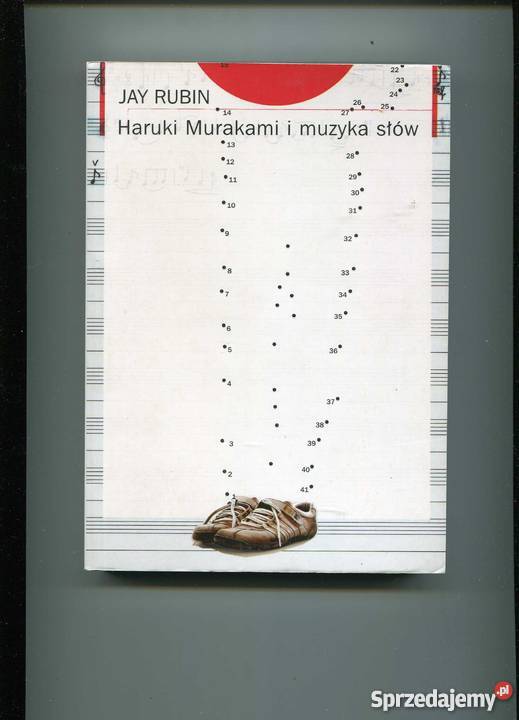 JAY RUBIN
Haruki Murakami i muzyka słów
22
23
24
26
27
25
14
13
12
28
11
29
30
10
31
9
32
8
33
7
34
35
6
5
36
4
37
38
3
39
40
2
41
1
Sprzedajemy.pl